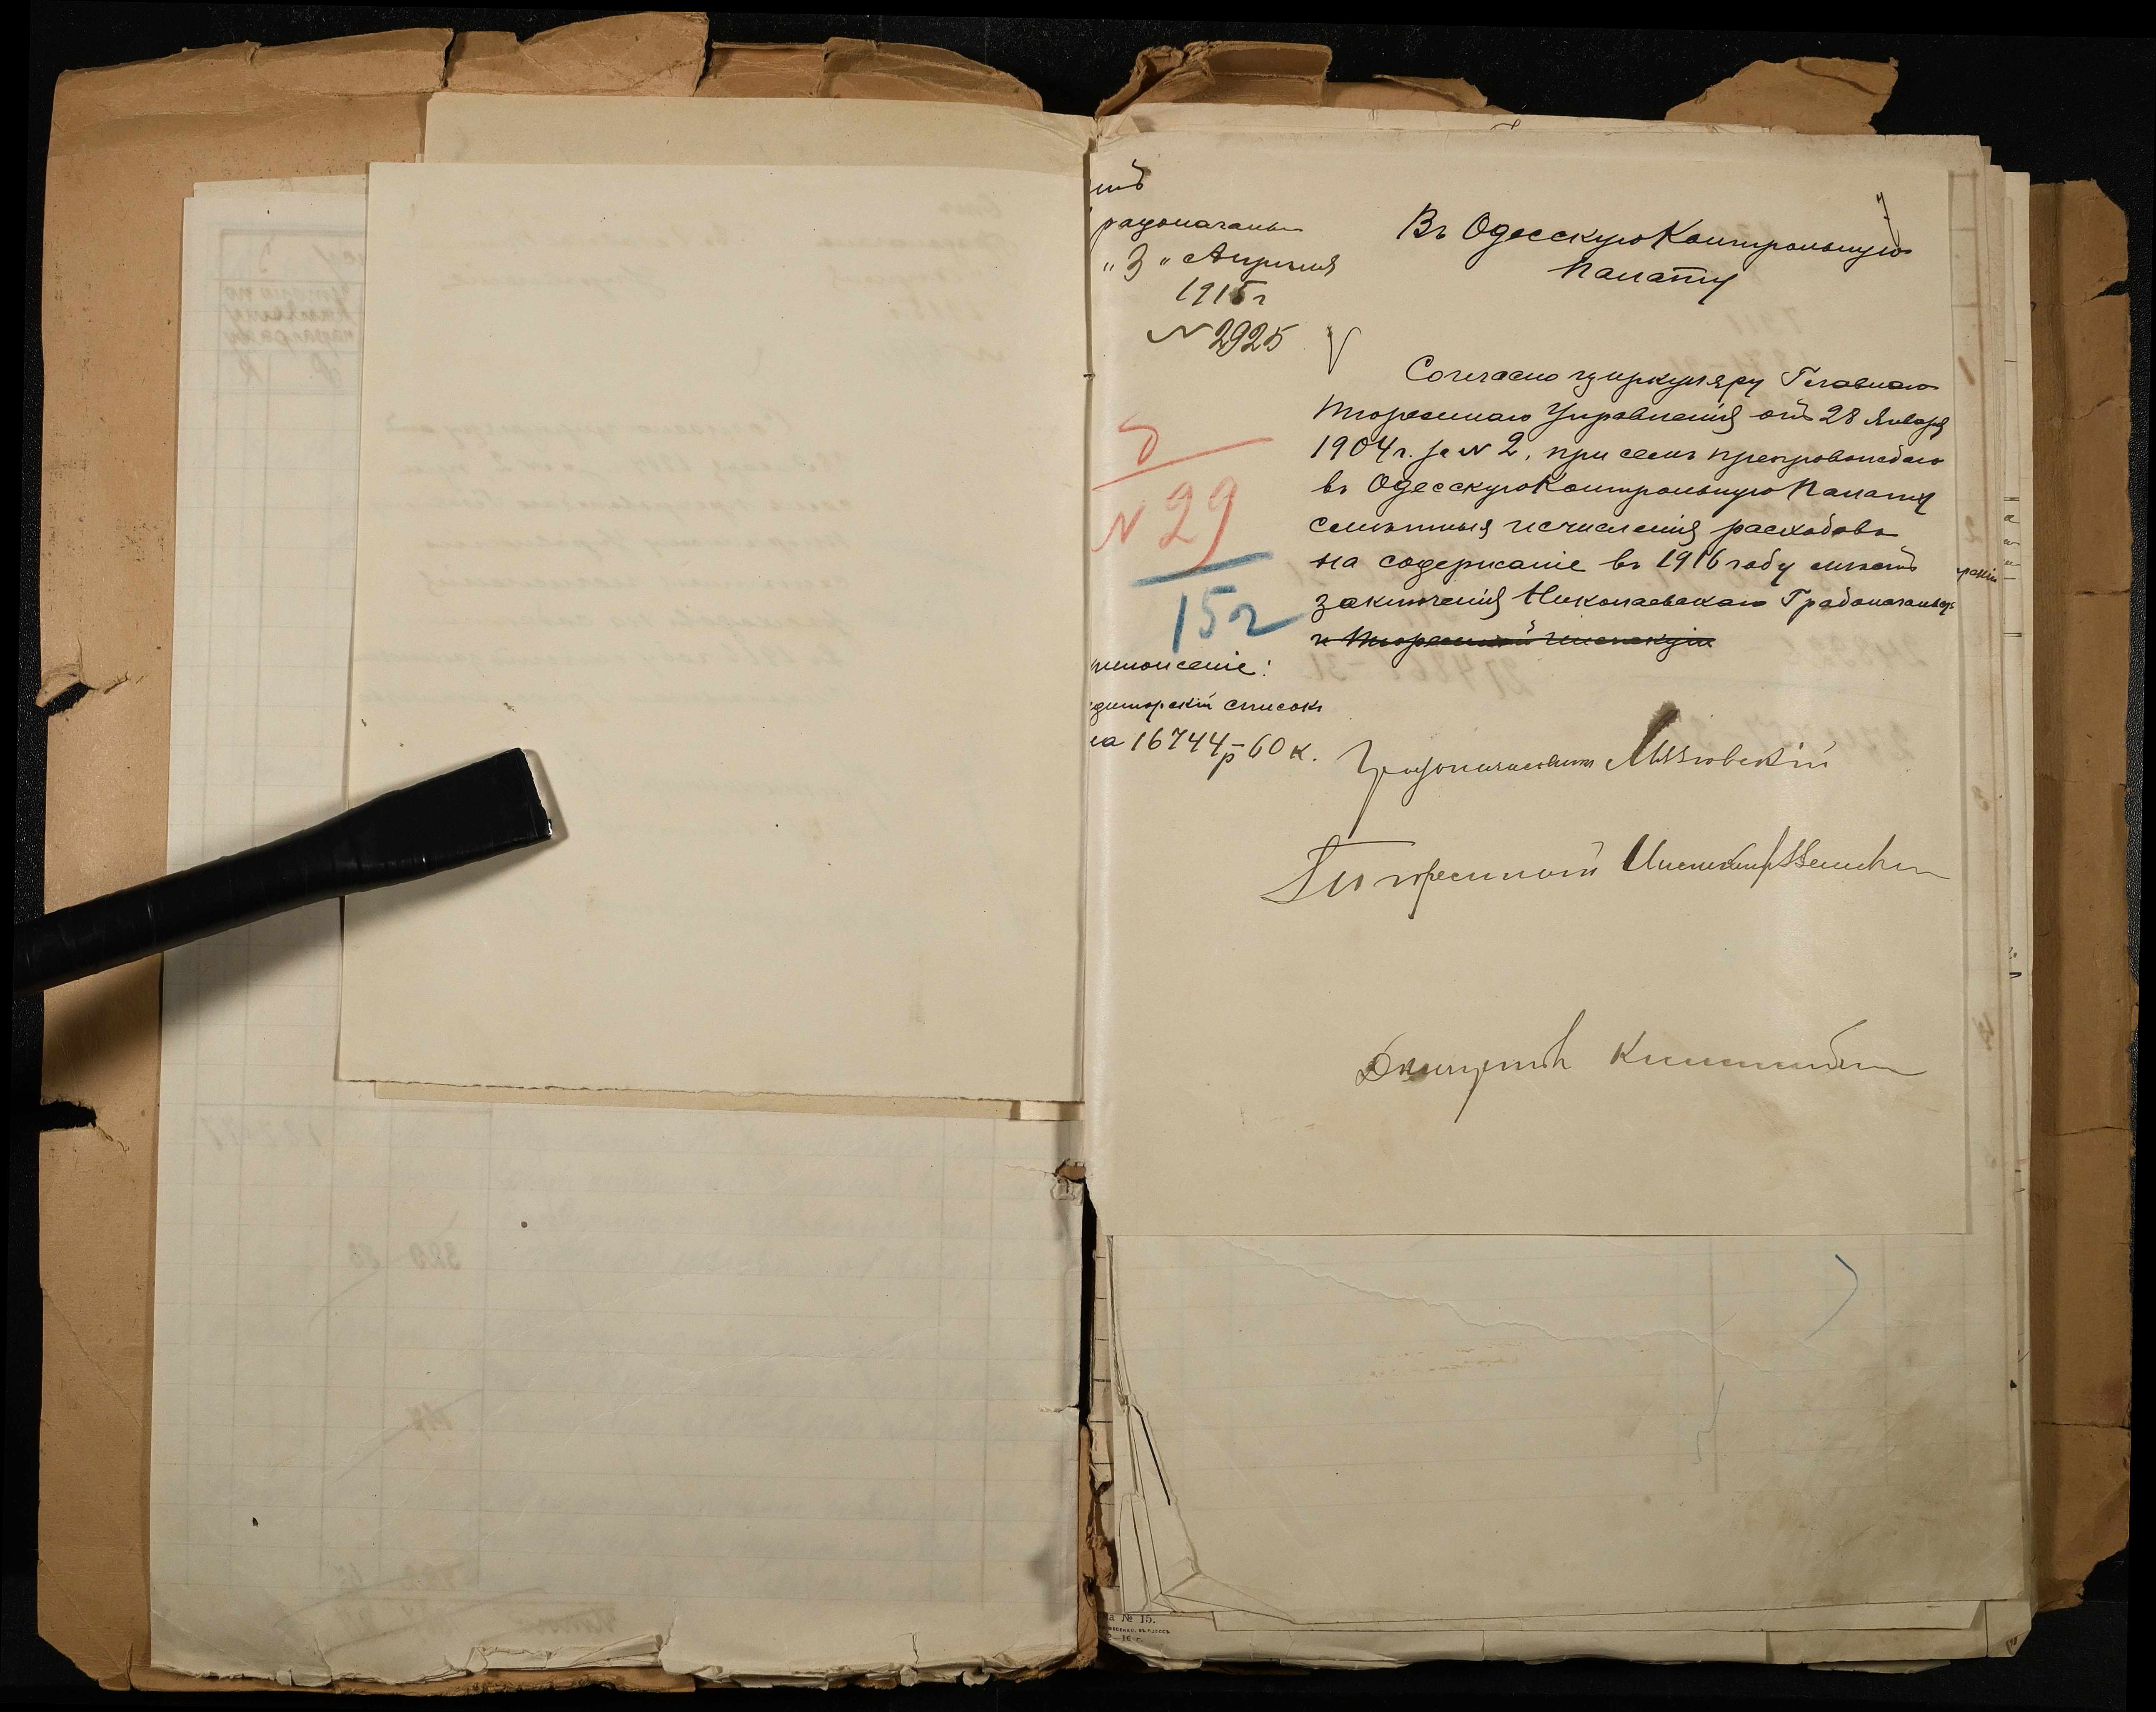 радоначаль
"3" Апрѣля
1915 г
№ 2925
Въ Одесскую Контрольную
Палату
Согласно циркуляру Главнаго
Тюремнаго Управленія отъ 28 Января
1904 г. за № 2, при семъ препровождаю
въ Одесскую Контрольную Палату
смѣтныя исчисленія расходовъ
на содержаніе въ 1916 году мѣстъ
заключенія Николаевскаго Градоначальс
и Тюремной Инспекціи
№ 29
15 г
приложеніе:
диторскій списокъ
на 16744 р – 60 к.
Градоначальникъ
Тюремный Инспекторъ
а № 15.